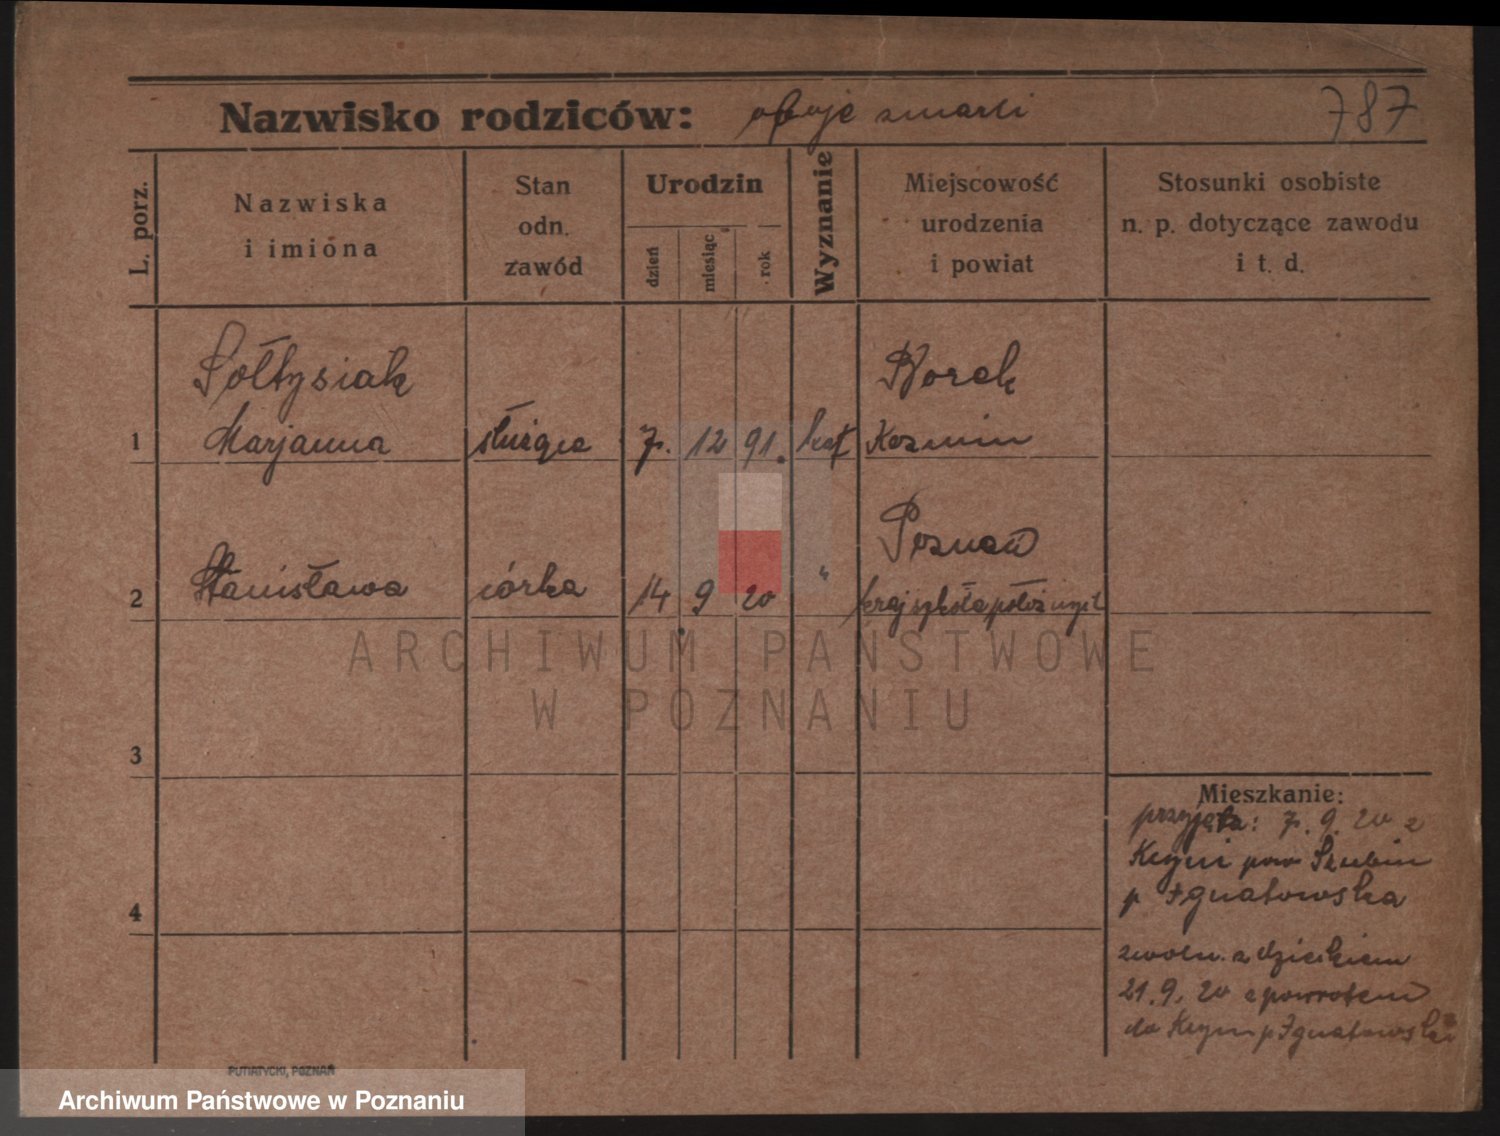 Nazwisko rodziców: oboje zmarli 787
L. porz.
Nazwiska
i imiona
Stan
odn.
zawód
Urodzin
dzień
miesiąc
rok
Wyznanie
Miejscowość
urodzenia
i powiat
Stosunki osobiste
n. p. dotyczące zawodu
i t. d.
Sołtysiak Borek
1 Marjanna służąca 7. 12 91. kat Kozmin
Poznań
2 Stanisława córka 14 9 20 " kraj szkoła położnych
ARCHIWUM PAŃSTWOWE
W POZNANIU
3
Mieszkanie:
przyjęta: 7. 9. 20 z
Kcyni pow Szubin
4 p Ignatowska
zwoln. z dzieckiem
21. 9. 20 z powrotem
do Kcyni p Ignatowska
PUTIATYCKI, POZNAŃ
Archiwum Państwowe w Poznaniu